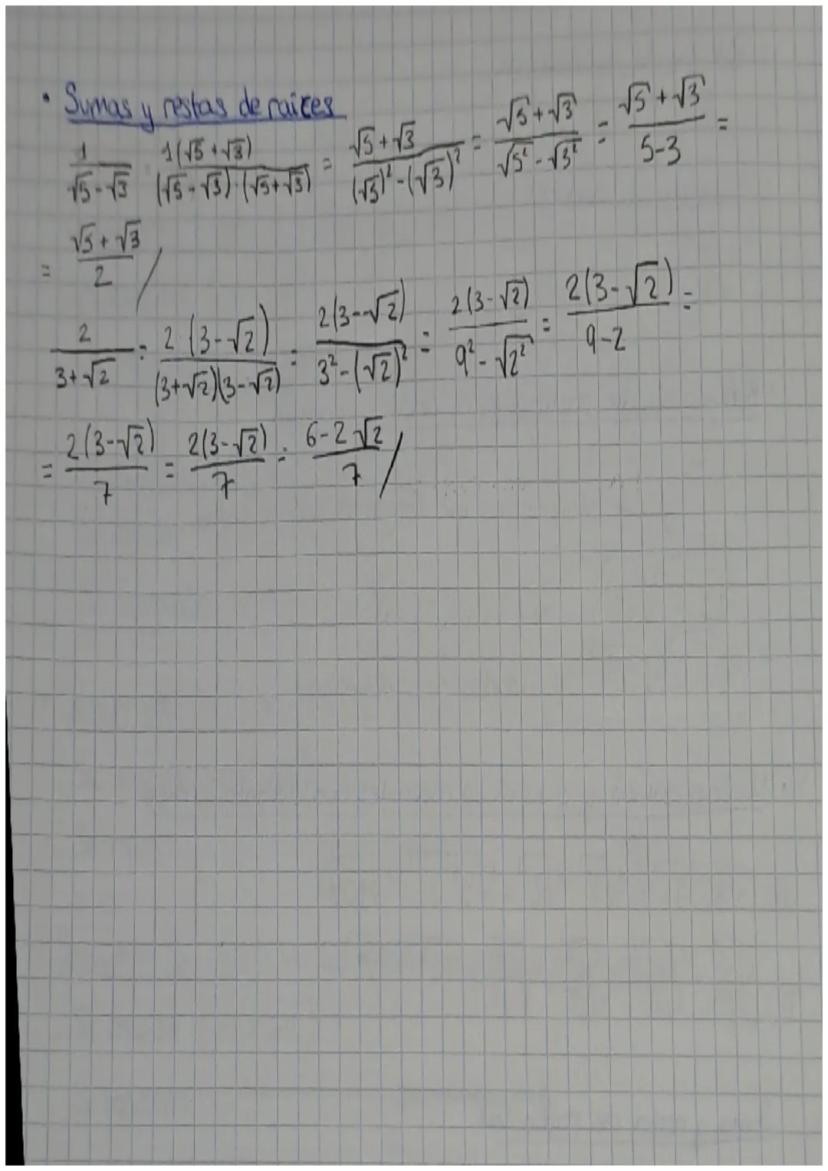 • Sumas y restas de raices
1/(√5 - √3) 1(√5 + √3)/((√5 - √3)·(√5+√3)) = (√5 + √3)/((√5)² - (√3)²) = (√5 + √3)/(√5² - √3²) = (√5 + √3)/(5-3) =
= (√5 + √3)/2 /
2/(3+√2) = 2(3-√2)/((3+√2)(3-√2)) = 2(3-√2)/(3² - (√2)²) = 2(3-√2)/(9² - √2²) = 2(3-√2)/(9-2) =
= 2(3-√2)/7 = 2(3-√2)/7 = (6-2√2)/7 /